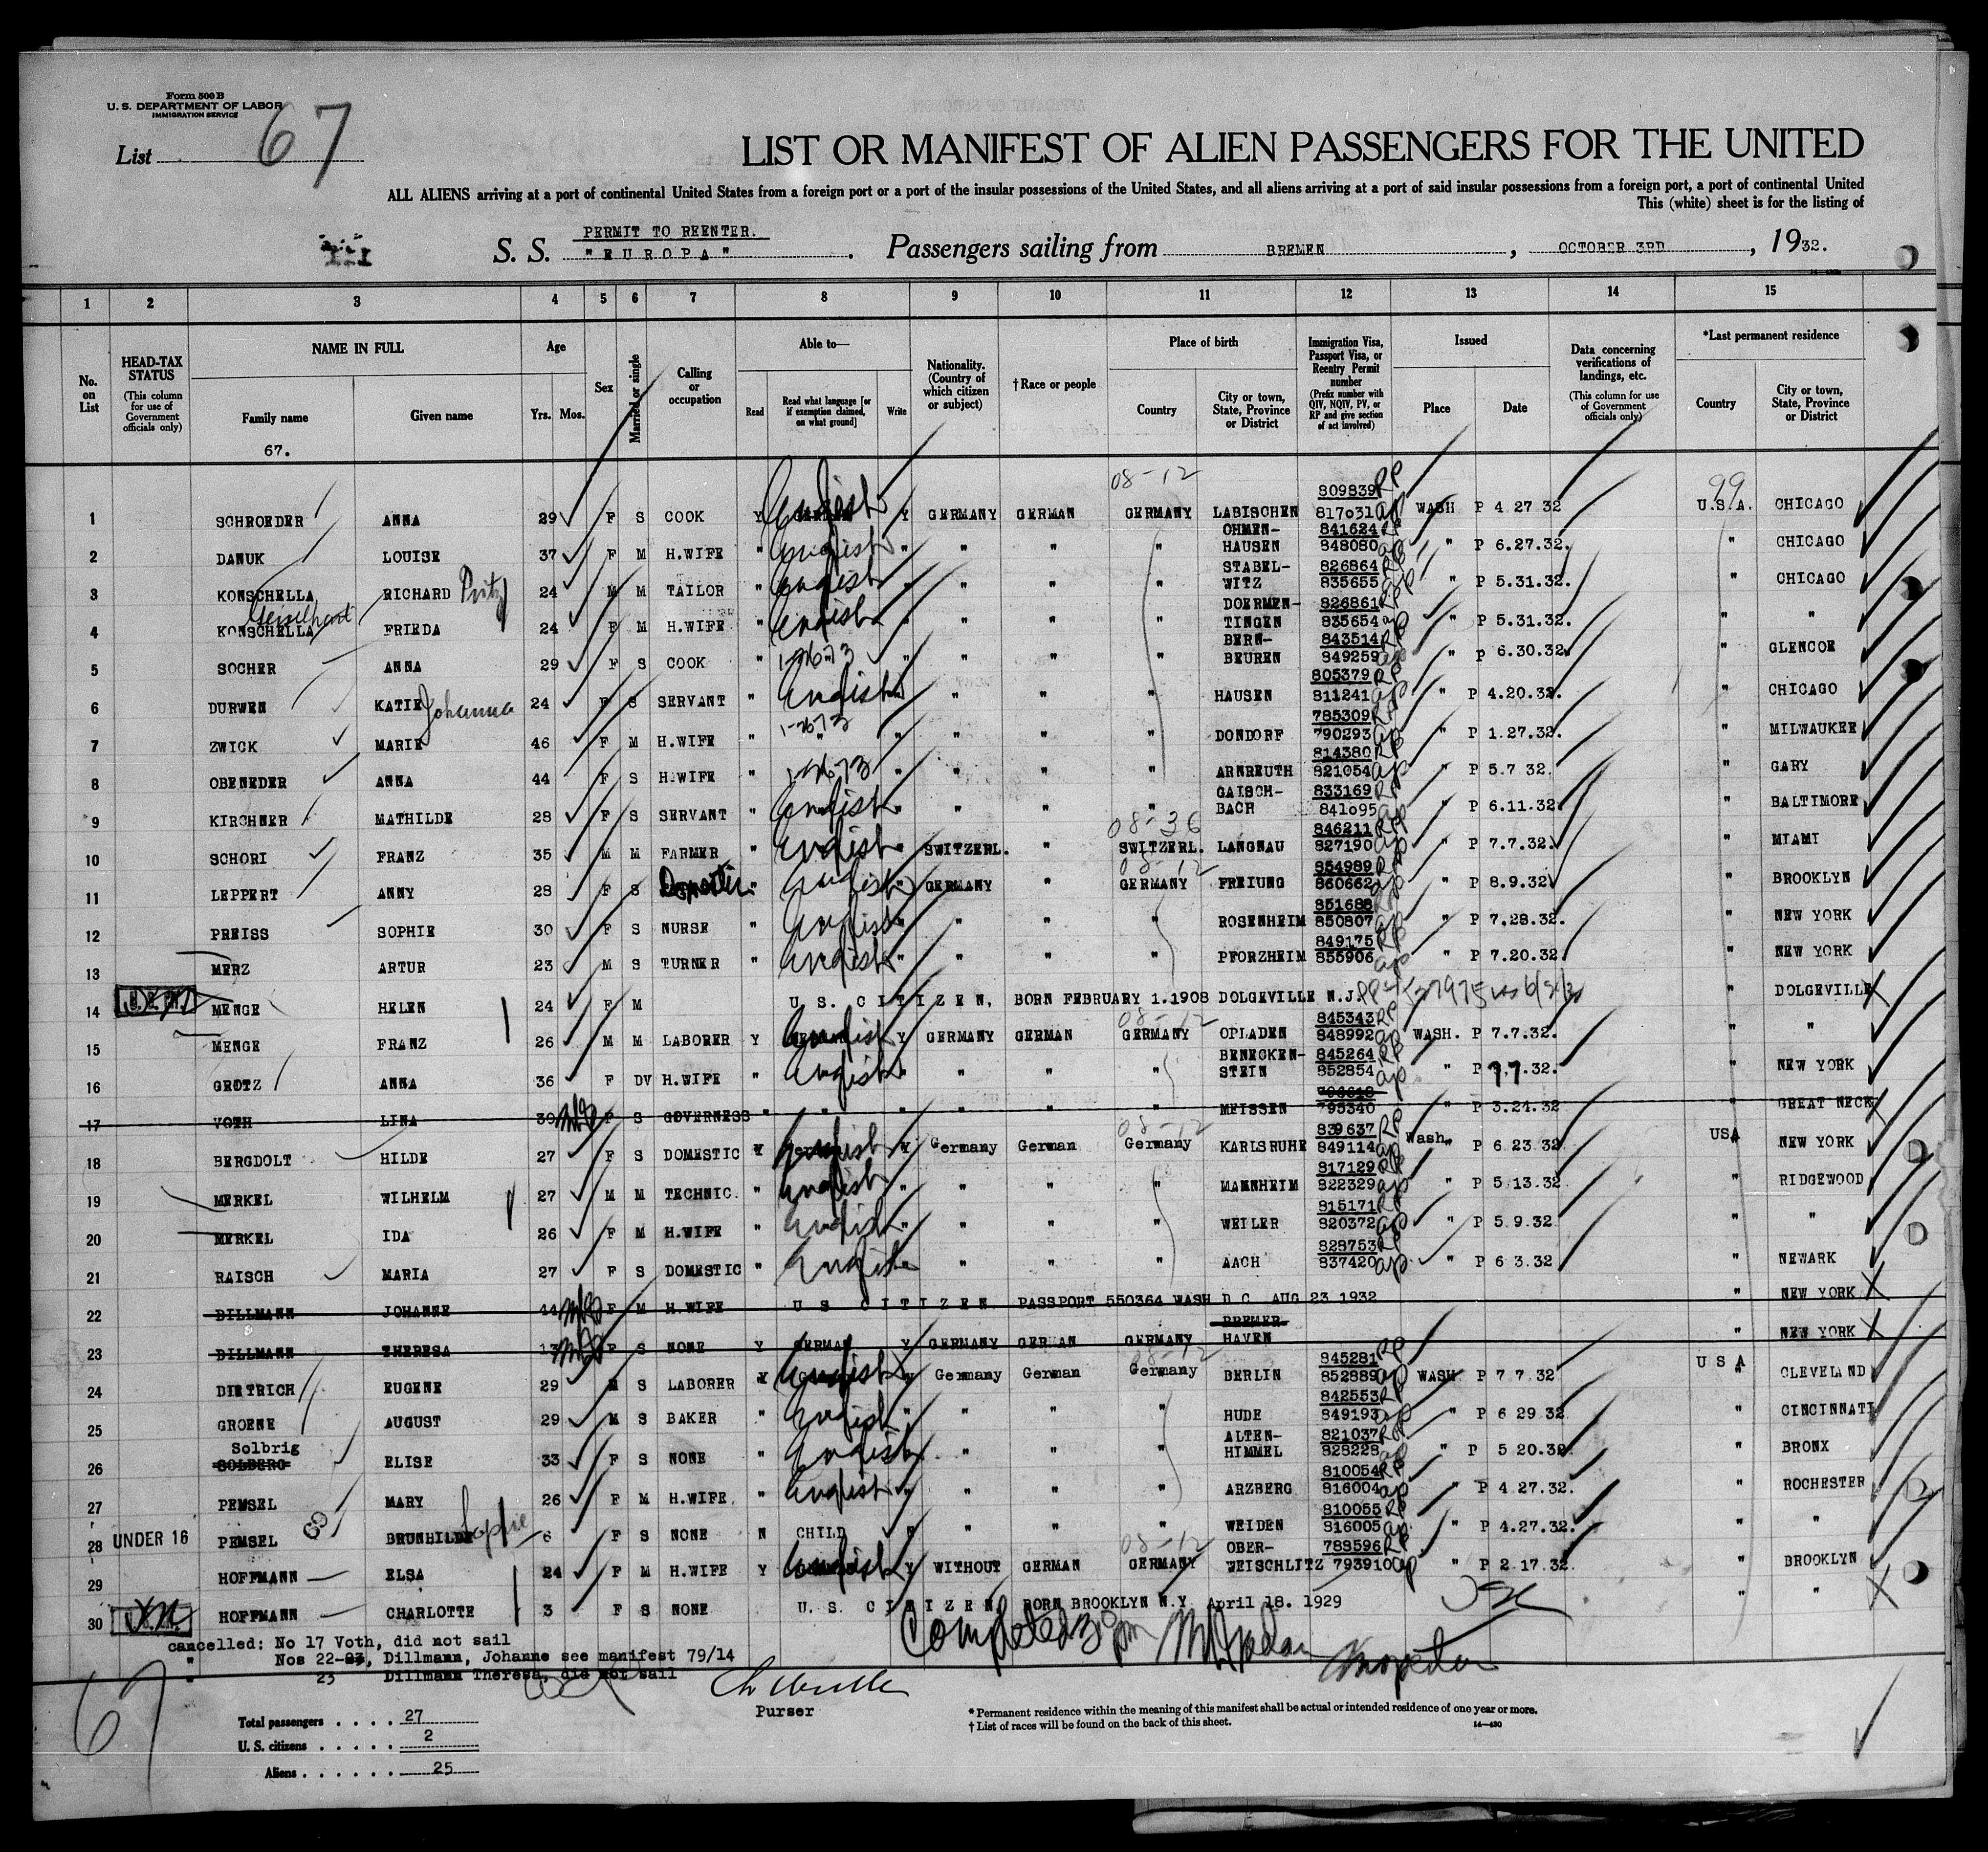 Form 500 B
U. S. DEPARTMENT OF LABOR
IMMIGRATION SERVICE
List 67
LIST OR MANIFEST OF ALIEN PASSENGERS FOR THE UNITED
ALL ALIENS arriving at a port of continental United States from a foreign port or a port of the insular possessions of the United States, and all aliens arriving at a port of said insular possessions from a foreign port, a port of continental United
This (white) sheet is for the listing of
PERMIT TO REENTER.
S. S. "EUROPA". Passengers sailing from BREMEN, OCTOBER 3RD, 1932.
1 2 3 4 5 6 7 8 9 10 11 12 13 14 15
No. on List
HEAD-TAX STATUS (This column for use of Government officials only)
NAME IN FULL Family name Given name
Age Yrs. Mos.
Sex
Married or single
Calling or occupation
Able to— Read Read what language [or if exemption claimed, on what ground] Write
Nationality. (Country of which citizen or subject)
†Race or people
Place of birth Country City or town, State, Province or District
Immigration Visa, Passport Visa, or Reentry Permit number (Prefix number with QIV, NQIV, PV, or RP and give section of act involved)
Issued Place Date
Data concerning verifications of landings, etc. (This column for use of Government officials only)
*Last permanent residence Country City or town, State, Province or District
67.
08-12 99
809839 RP
1 SCHROEDER ANNA 29 F S COOK Y English Y GERMANY GERMAN GERMANY LABISCHEN 817031 ap WASH P 4 27 32 U.S.A. CHICAGO
OHMEN- 841624 RP
2 DANUK LOUISE 37 F M H.WIFE " English " " " " HAUSEN 848080 ap " P 6.27.32. " CHICAGO
STABEL- 826864 RP
3 KONSCHELLA RICHARD 24 M M TAILOR " English " " " " WITZ 835655 ap " P 5.31.32. " CHICAGO
DOERMEN- 826861 RP
4 KONSCHELLA FRIEDA 24 F M H.WIFE " English " " " " TINGEN 835654 ap " P 5.31.32. " "
BERN- 843514 RP
5 SOCHER ANNA 29 F S COOK " 1-26-73 " " " " BEUREN 849259 ap " P 6.30.32. " GLENCOE
805379 RP
6 DURWEN KATIE Johanna 24 F S SERVANT " English " " " " HAUSEN 811241 ap " P 4.20.32. " CHICAGO
785309 RP
7 ZWICK MARIE 46 F M H.WIFE " 1-26-73 " " " " " DONDORF 790293 ap " P 1.27.32. " MILWAUKEE
814380 RP
8 OBENEDER ANNA 44 F S H.WIFE " 1-26-73 " " " " ARNREUTH 821054 ap " P 5.7 32. " GARY
GAISCH- 833169 RP
9 KIRCHNER MATHILDE 28 F S SERVANT " English " " " " BACH 841095 ap " P 6.11.32. " BALTIMORE
08-36 846211 RP
10 SCHORI FRANZ 35 M M FARMER " English " SWITZERL. " SWITZERL. LANGNAU 827190 ap " P 7.7.32. " MIAMI
08-12 854989 RP
11 LEPPERT ANNY 28 F S " English " GERMANY " GERMANY FREIUNG 860662 ap " P 8.9.32 " BROOKLYN
851688 RP
12 PREISS SOPHIE 30 F S NURSE " English " " " " ROSENHEIM 850807 ap " P 7.28.32. " NEW YORK
849175 RP
13 MERZ ARTUR 23 M S TURNER " English " " " " PFORZHEIM 855906 ap " P 7.20.32. " NEW YORK
14 MENGE HELEN 24 F M U S. CITIZEN, BORN FEBRUARY 1.1908 DOLGEVILLE N.J. " DOLGEVILLE
08-12 845343 RP
15 MENGE FRANZ 26 M M LABORER Y English Y GERMANY GERMAN GERMANY OPLADEN 848992 ap WASH. P 7.7.32. " "
BENECKEN- 845264 RP
16 GROTZ ANNA 36 F DV H.WIFE " English " " " " STEIN 852854 ap " P 7.7.32. " NEW YORK
17 VOTH LINA 39 F S GOVERNESS " " " " " " MEISSEN 795340 " P 3.24.32 " GREAT NECK
08-12 839637 RP
18 BERGDOLT HILDE 27 F S DOMESTIC Y English Y Germany German Germany KARLSRUHE 849114 ap Wash. P 6 23 32 USA NEW YORK
817129 RP
19 MERKEL WILHELM 27 M M TECHNIC. " English " " " " MANNHEIM 822329 ap " P 5 13.32 " RIDGEWOOD
815171 RP
20 MERKEL IDA 26 F M H.WIFE " English " " " " WEILER 820372 ap " P 5 9.32 " "
828753 RP
21 RAISCH MARIA 27 F S DOMESTIC " English " " " " AACH 837420 ap " P 6 3.32 " NEWARK
22 DILLMANN JOHANNE 44 F M H.WIFE U S CITIZEN PASSPORT 550364 WASH D C AUG 23 1932 " NEW YORK
BREMER-
23 DILLMANN THERESA 13 F S NONE Y GERMAN Y GERMANY GERMAN GERMANY HAVEN " NEW YORK
08-12 845281 RP
24 DIETRICH EUGENE 29 M S LABORER Y English Y Germany German Germany BERLIN 852889 ap WASH P 7 7 32 U S A CLEVELAND
842553 RP
25 GROENE AUGUST 29 M S BAKER " English " " " " HUDE 849193 ap " P 6 29 32 " CINCINNATI
Solbrig ALTEN- 821037 RP
26 SOLBERG ELISE 33 F S NONE " English " " " " HIMMEL 828228 ap " P 5 20.32 " BRONX
810054 RP
27 PEMSEL MARY 26 F M H.WIFE. " English " " " " ARZBERG 816004 ap " P 4.27.32. " ROCHESTER
810055 RP
28 UNDER 16 PEMSEL 69 BRUNHILDE Sophie 6 F S NONE N CHILD N " " " WEIDEN 816005 ap " P 4.27.32. " "
08-12 OBER- 788596 RP
29 HOFFMANN ELSA 24 F M H.WIFE Y English Y WITHOUT GERMAN GERMANY WEISCHLITZ 793910 ap " P 2.17.32. " BROOKLYN
30 HOFFMANN CHARLOTTE 3 F S NONE U. S. CITIZEN BORN BROOKLYN N.Y April 18. 1929 " "
cancelled: No 17 Voth, did not sail
" Nos 22-23, Dillmann, Johanne see manifest 79/14
" 23 Dillmann Theresa, did not sail
Completed
67
Purser
Total passengers . . . . 27
U. S. citizens . . . . . 2
Aliens . . . . . . 25
* Permanent residence within the meaning of this manifest shall be actual or intended residence of one year or more.
† List of races will be found on the back of this sheet. 14—430